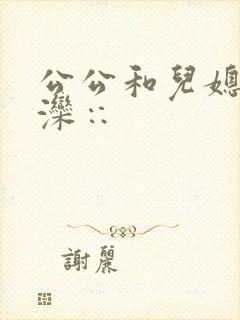 公公和兒媳
灤::
謝麗